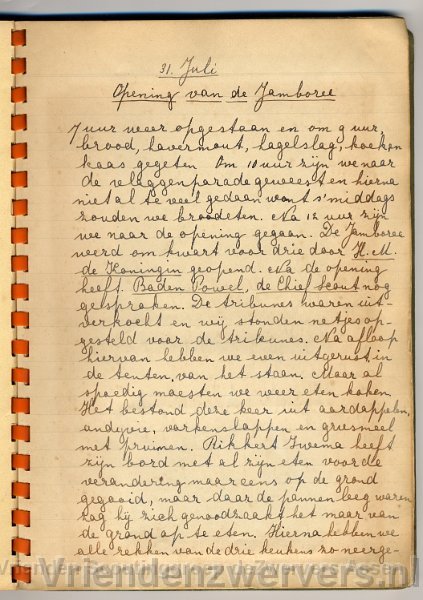 31. Juli
Opening van de Jamboree
7 uur weer opgestaan en om 9 uur,
brood, havermout, hagelslag, koeken
kaas gegeten Om 10 uur zijn we naar
de vlaggenparade geweest en hierna
niet al te veel gedaan want s'middags
zouden we broodeten. Na 12 uur zijn
we naar de opening gegaan. De Jamboree
werd om kwart voor drie door H.M.
de Koningin geopend. Na de opening
heeft Baden Powel, de Chief Scout nog
gesproken. De tribunes waren uit-
verkocht en wij stonden netjes op-
gesteld voor de tribunes. Na afloop
hiervan hebben we even uitgerust in
de tenten, van het staan. Maar al
spoedig moesten we weer eten koken.
Het bestond deze keer uit aardappelen,
andyvie, varkenslappen en griesmeel
met pruimen. Rikkert Iwema heeft
zijn bord met al zijn eten voor de
verandering maar eens op de grond
gegooid, maar daar de pannen leeg waren
zag hij zich genoodzaakt het maar van
de grond op te eten. Hierna hebben we
alle rekken van de drie keukens zo neerge-
Vriendenzwervers.nl